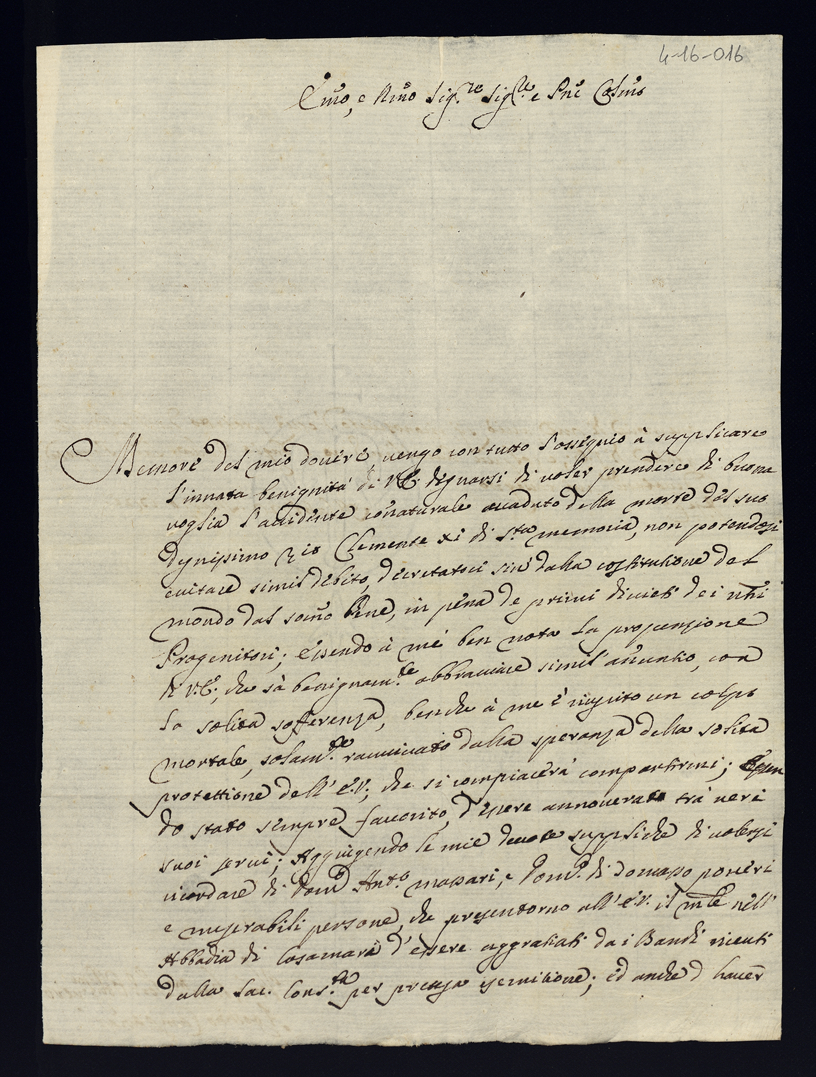 4-16-016
Em̃o, e Rm̃o Sig.re Sig.re e Pñe Colm̃o
Memore del mio dovere vengo con tutto l'ossequio à supplicare
l'innata benignità di V.E. degnarsi di voler prendere di buona
voglia l'accidente connaturale accaduto della morte del suo
degnissimo Zio Clemente xi di S.ta memoria, non potendosi
evitare simil debito, decretatoci sin' dalla costitutione del
mondo dal som̃o Bene, in pena de primi divieti dei nr̃i
Progenitori; essendo à me ben nota la propenzione
di V.E., che sà benignam.te abbracciare simil' annuntio, con
la solita sofferenza, benche à me è riuscito un colpo
mortale, solam.te ravvivato dalla speranza della solita
protettione dell' E.V., che si compiacerà compartirmi; essen
do stato sempre favorito, d'essere annoverato trà veri
suoi servi; Aggiugendo le mie devote suppliche di volersi
ricordare di Dom.o Ant.o massari, e Dom.o di Tomasso poveri
e miserabili persone, che presentorno all' E.V. il mle nell'
Abbadia di Casamara d'essere aggratiati da i Bandi ricevuti
dalla Sac. Cons.ta per pretesa ; ed anche d' haver